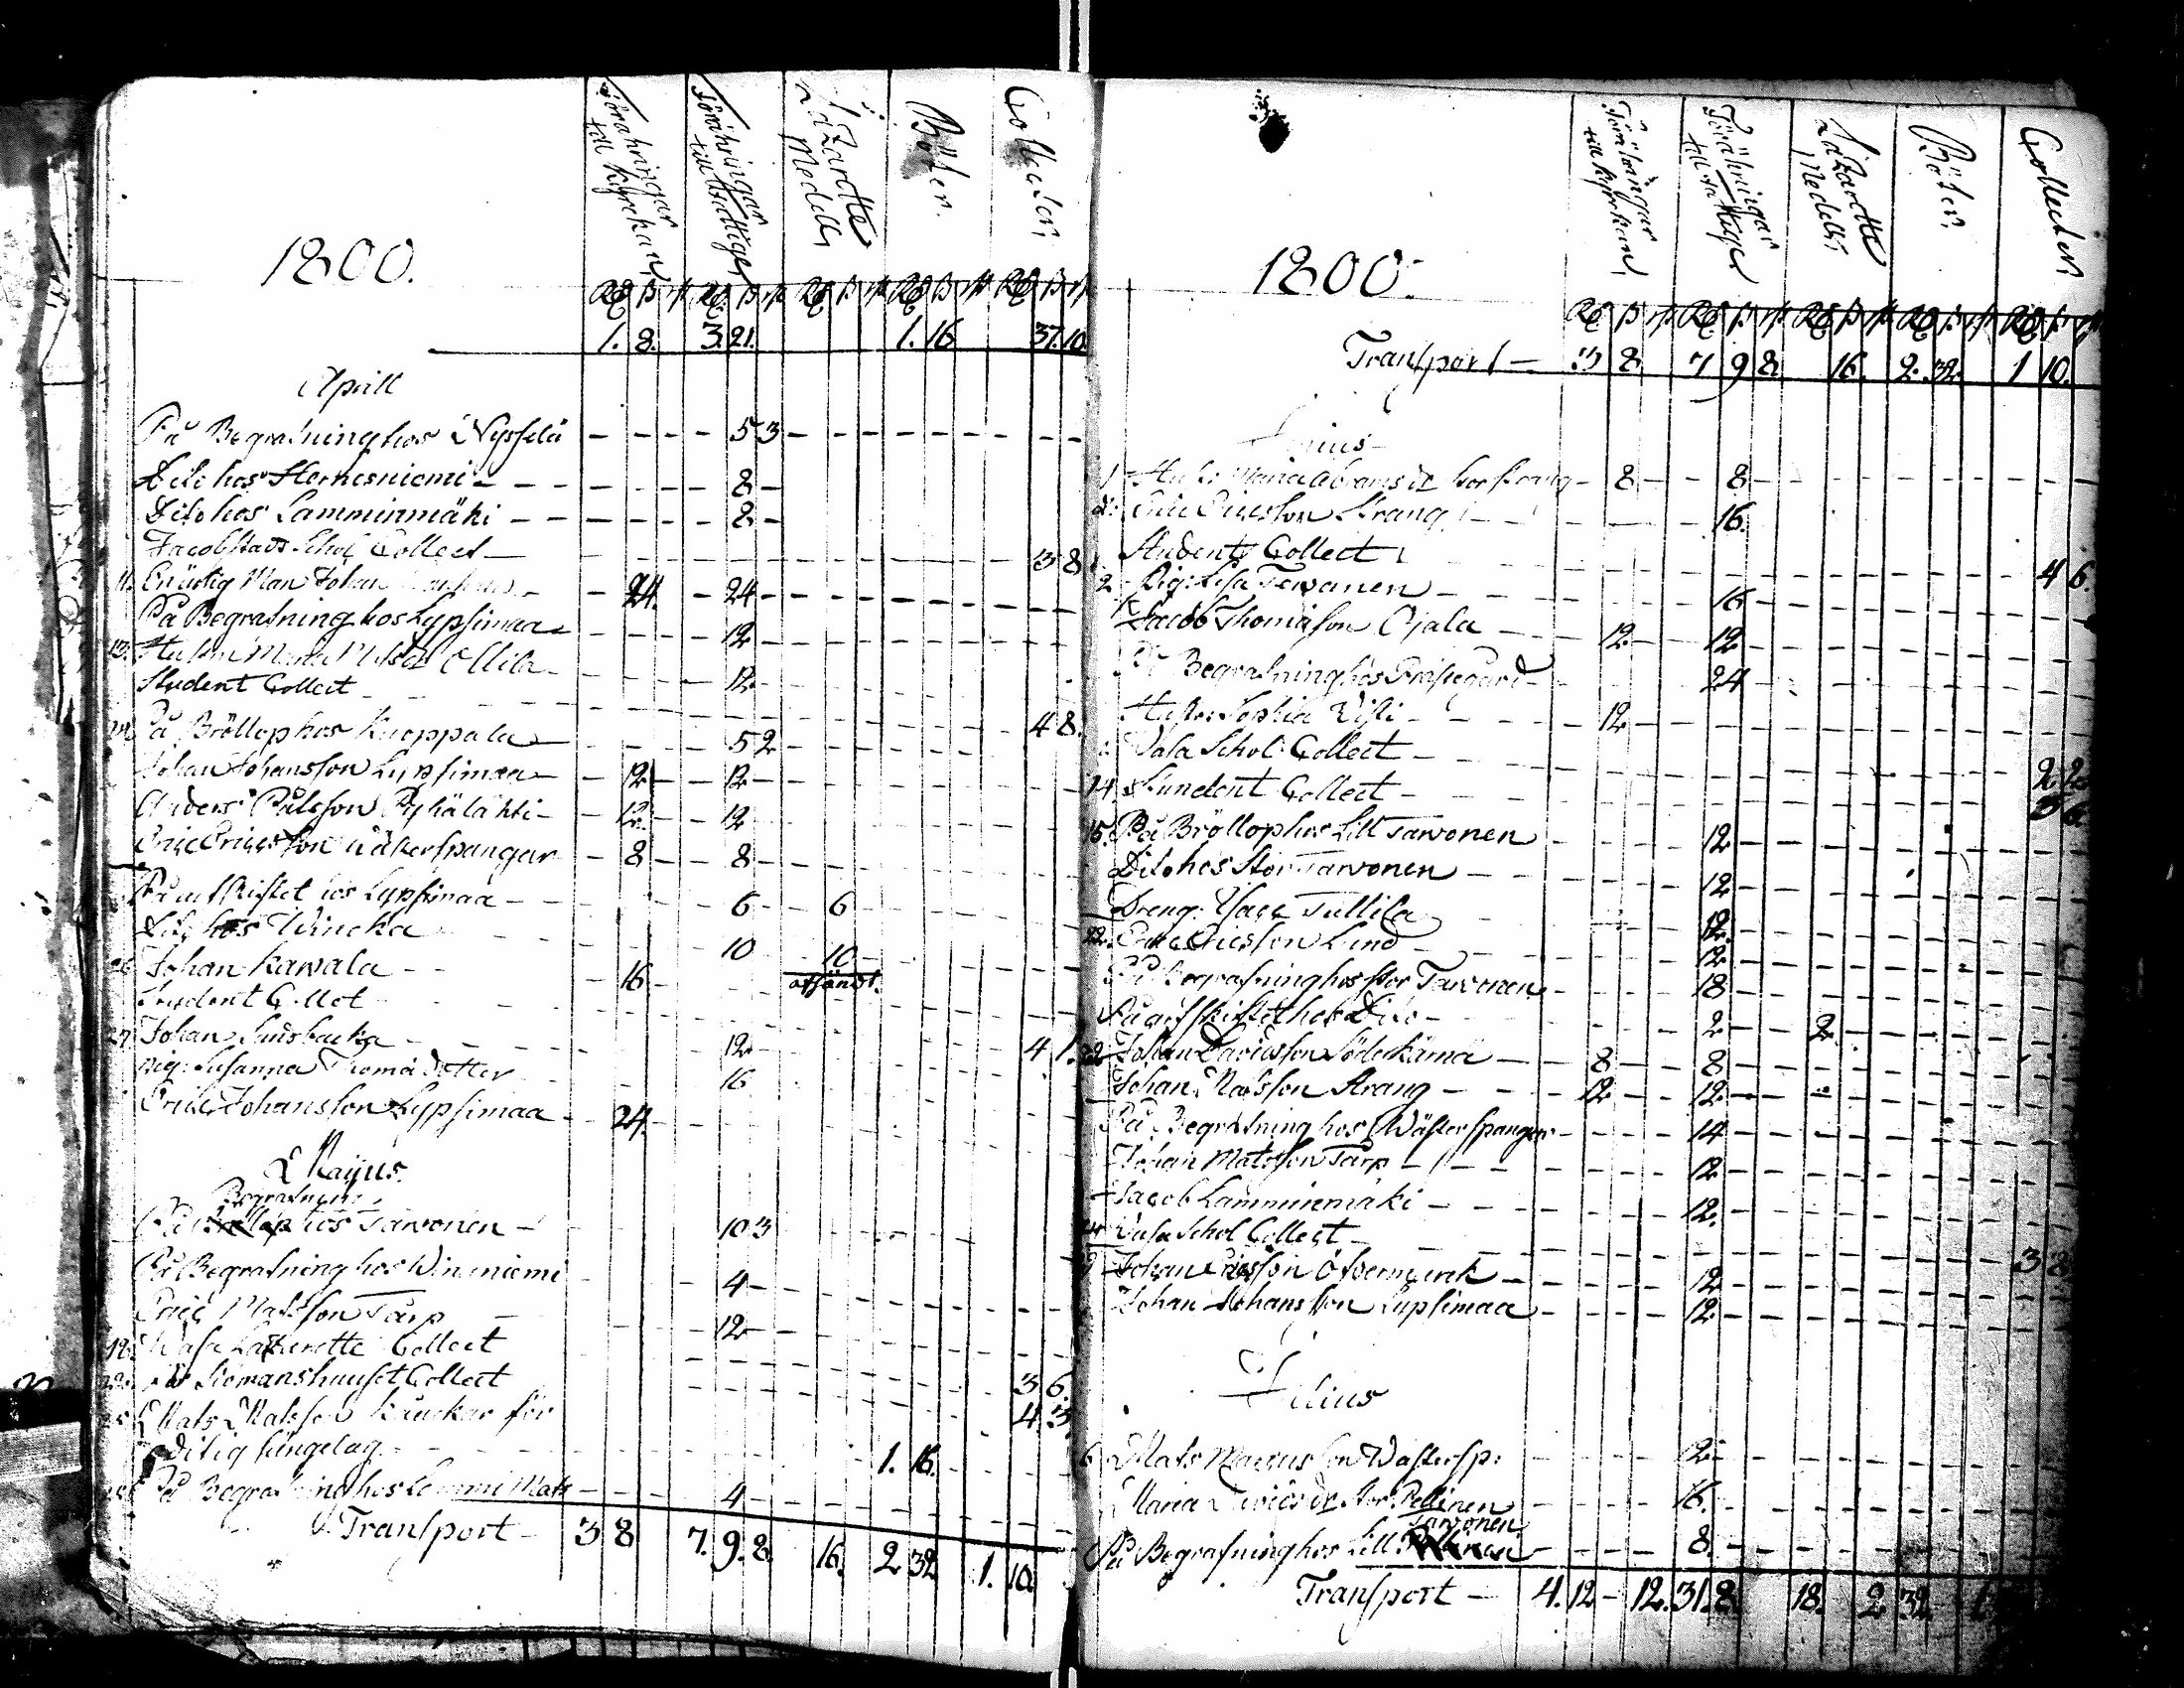 1800.
Föräringar till Kyrckan
Föräringar till Fattige
Lazarette Medell
Böter.
Collecter
1. 8. 3. 21. 1. 16 37. 10.
Aprill
På Begrafning hos Nysselä - - - - 5 3 - - -
Dito hos Hernesniemi - - - 8 -
Dito hos Lamminmäki - - - 8 -
Jacobstads Schol Collect - 3 8
11. Johan - 24. - 24 -
På Begrafning hos Lypsimaa - - - 12 -
13. Ollila - - - 12 -
Student Collect - - 4 8.
På Bröllop hos Knoppala - - - 5 2 -
Johan Johansson Lypsimaa - 12 - - 12 -
Anders Pålsson Pyhälähti - 12. - - 12
Eric Ericsson Wästerspangar - 8 - - 8 -
På arfskiftet hos Lypsimaa - - - 6 - - 6
Dito hos Wincka 10 10
afsändt.
Johan Karvala - - 16 -
Student Collect - 4 1.
27. Johan Sundbacka - - - 12 -
Pig: Susanna Thomædotter 16
Erik Johansson Lypsimaa - 24. -
Majus.
Begrafning
På hos Tarvonen - 10 3
På Begrafning hos Winniemi - - 4 -
Eric Matsson Tarp - 12 -
12. Wasa Lazarette Collect 3 6.
22. Siömanshuuset Collect 4. 3.
25. Mats Matsson för
Sängelag - - - 1. 16. -
På Begrafning hos Lammi Mats - - - 4 - - -
Transport - 3 8 7. 9. 8. 16. 2 32 1. 10.
1800.
Föräringar till Kyrckan
Föräringar till Fattige
Lazarette Medell
Böter
Collecter
Transport - 3 8. 7 9 8. 16. 2. 32. 1 10.
Junius
1 Hust: Maria Abramsdr Storstrang - 8 - - 8 -
d: Eric Ericsson Strang - - - 16.
Student Collect - - - 4 6.
2. Pig: Lisa Tervanen - - - 16 -
Jacob Thomasson Ojala - - 12. - - 12 -
På Begrafning hos Prästegård - - - 24 -
Hustr: Sophia Wisti - - - 12 -
Vasa Schol Collect - - - 2. 2
14. Student Collect - - - 3 6.
15. På Bröllop hos Lill Tarvonen - - - 12 -
Dito hos Stor Tarvonen - - - 12 -
Dreng: Isac Tullila - - 12.
22. Eric Ericsson Lund - - 12 -
På Begrafning hos Stor Tarvonen - - - 18 -
På arfskiftet hos Dito - - - 2 - - 2. -
Johan Davidsson Söderkåma - 8 - - 8 -
Johan Matsson Strang - - 12 - - 12 -
På Begrafning hos Wästerspangar - - - 14 -
Johan Matsson Tarp - - - 12 -
Jacob Lamminmäki - - - 12. -
Vasa Schol Collect - - 3 8
Johan Ericsson Öfvermarck - - - 12 -
Johan Johansson Lypsimaa - - - 12 -
Julius
6 Mats Wästersp: - - - 12 -
Maria Stor Pellinen - - - 16. -
Tarvonen
På Begrafning hos Lill - - - 8. -
Transport - 4. 12 - 12. 31. 8. 18. 2 32.